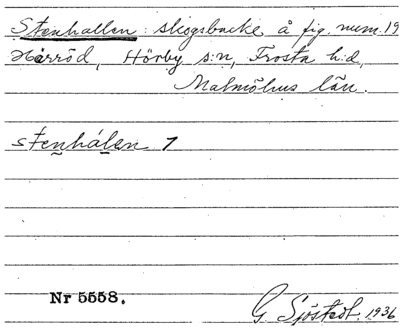 Stenhallen: skogsbacke å fig. num. 19
Härröd, Hörby s:n, Frosta h:d,
Malmöhus län.
stenhálen 1
Nr 5558.
G. Sjöstedt. 1936